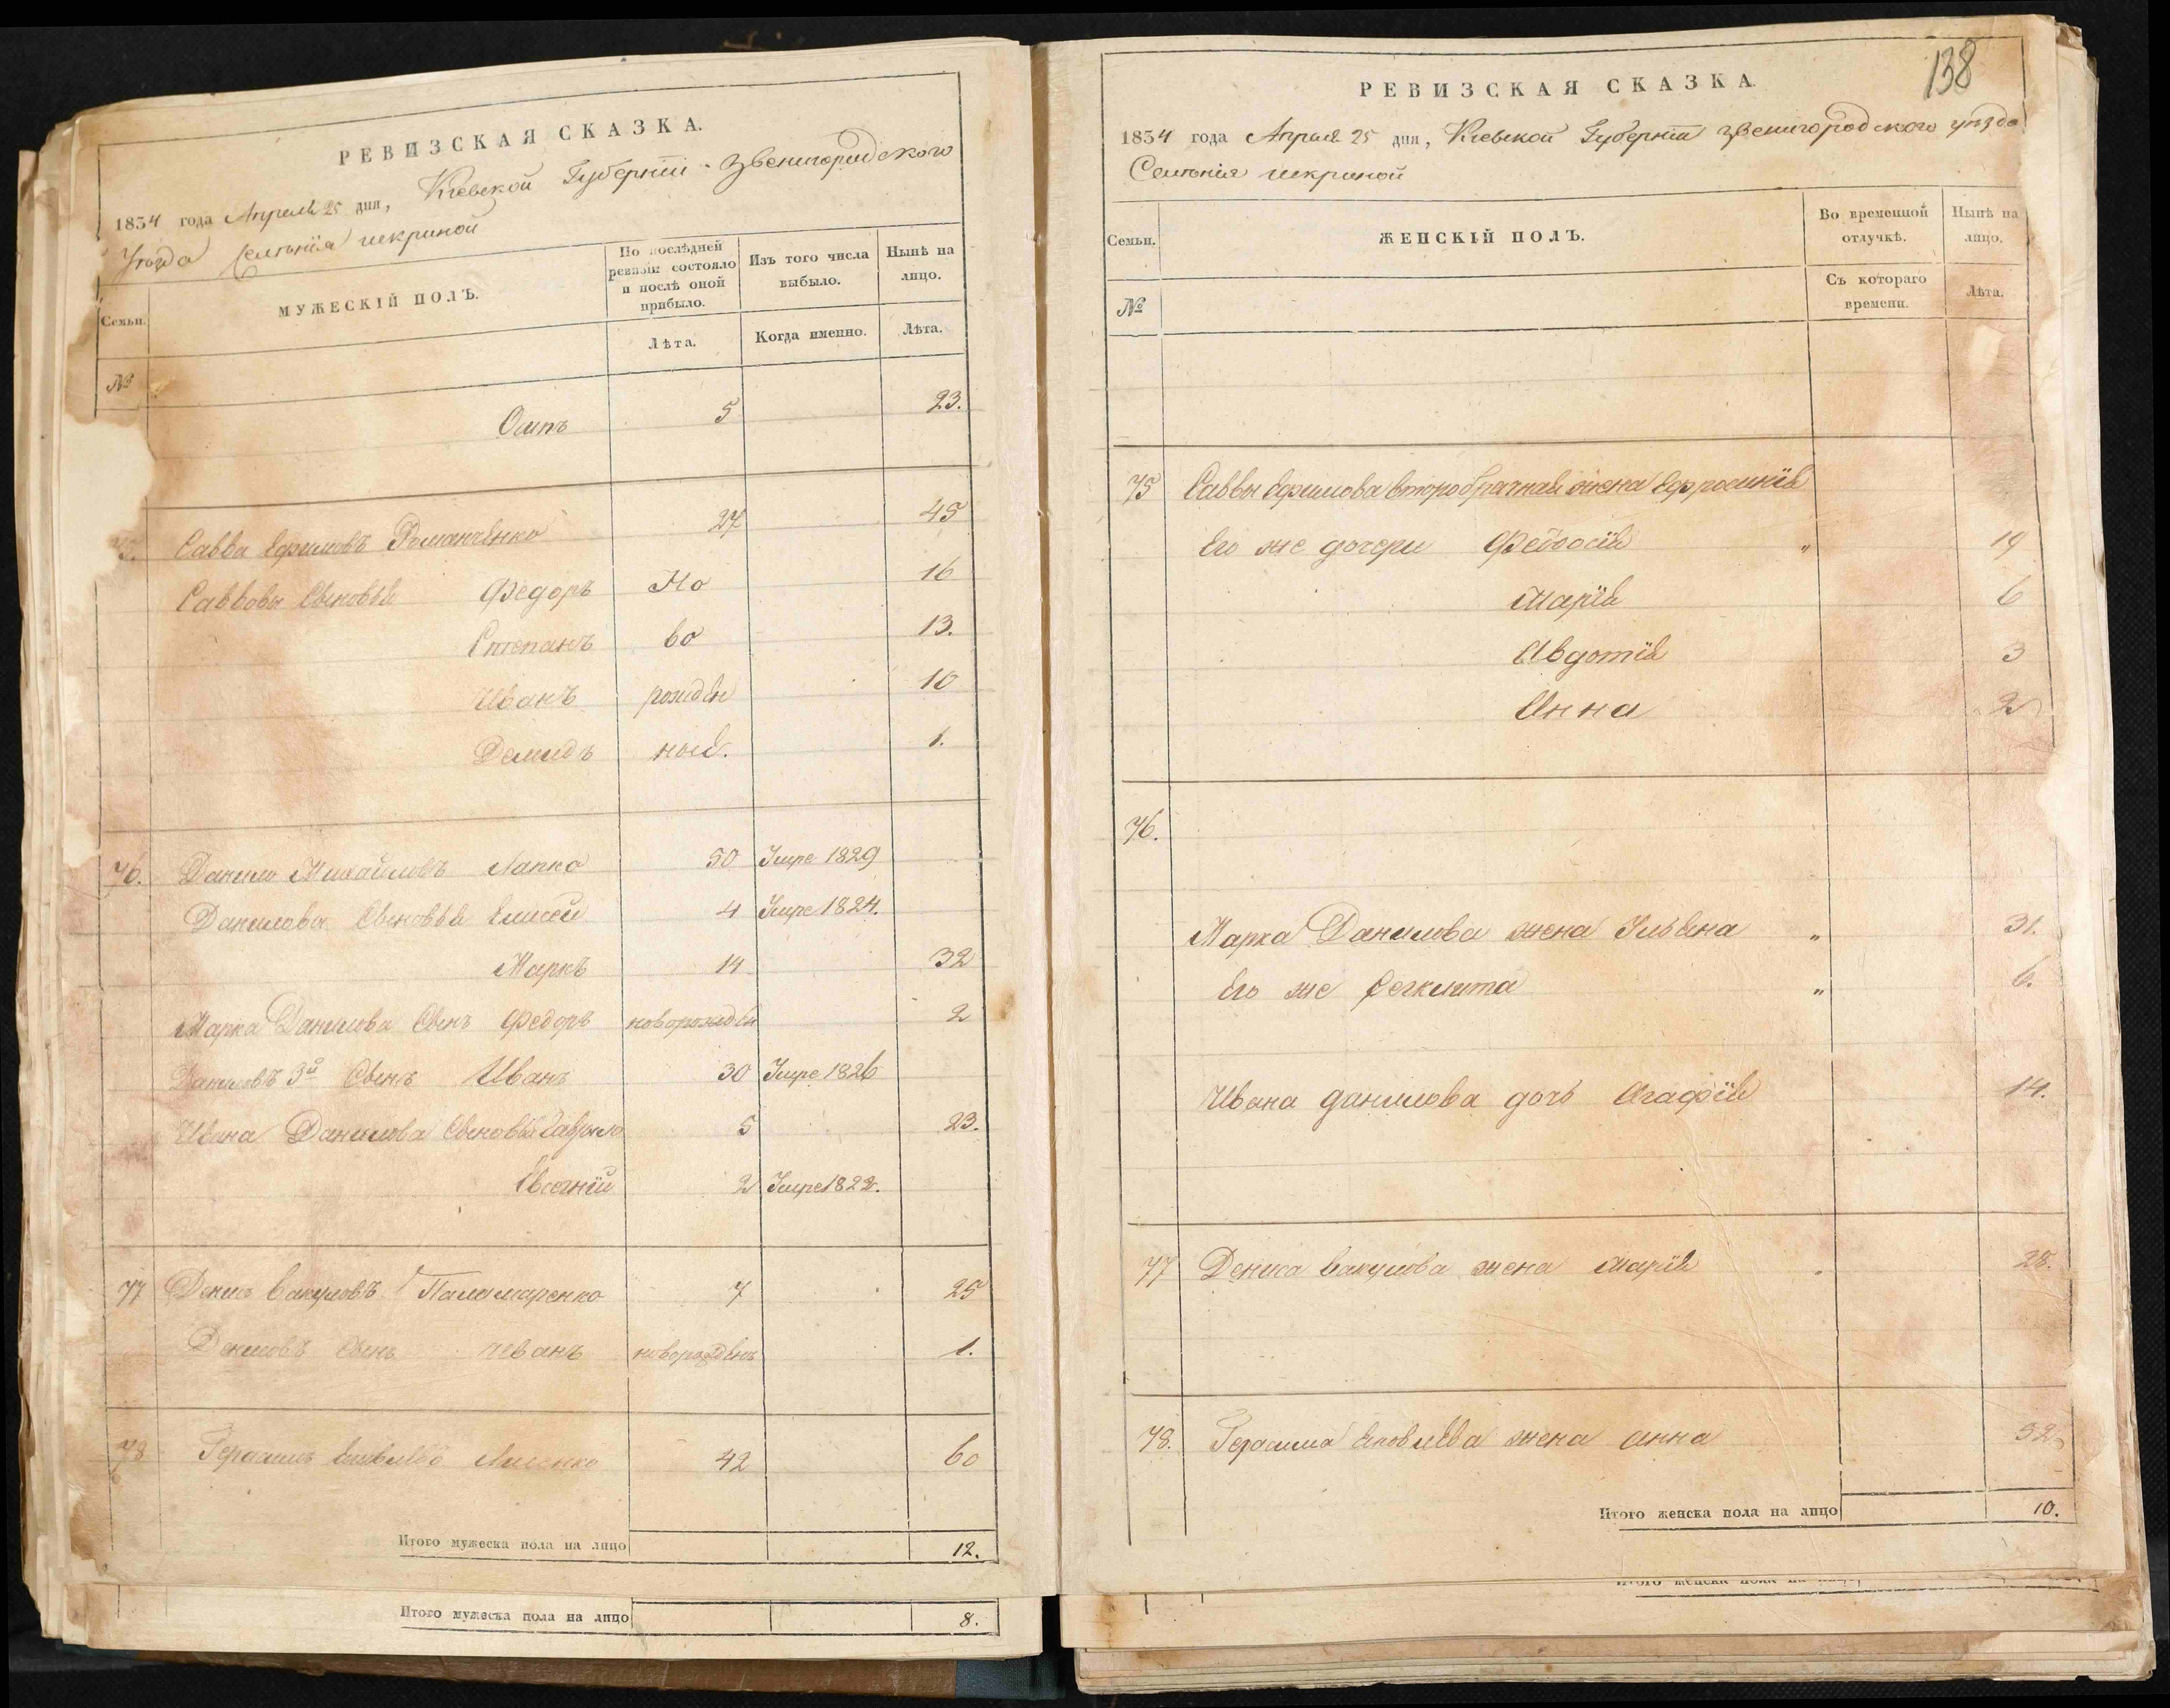 РЕВИЗСКАЯ СКАЗКА.
1834 года Апреля 25 дня, Кіевской Губерніи Звенигородского
Уезда Селенія Шкриной
Семьи.
МУЖЕСКІЙ ПОЛЪ.
По послѣдней ревизіи состояло и послѣ оной прибыло.
Изъ того числа выбыло.
Нынѣ на лицо.
№
Лѣта.
Когда именно.
Лѣта.
Осипъ 5 23.
75. Савва Ефимовъ Романченко 27 45
Саввовы Сыновья Федоръ Но 16
Степанъ во 13.
Иванъ рожден 10
Демидъ ныя. 1.
76. Данило Михайловъ Лапко 50 Умре 1829
Данилова Сыновья Елисей 4 Умре 1824.
Маркъ 14 32
Марка Данилова Сынъ Федоръ новорожден 2
Даниловъ 3й Сынъ Иванъ 30 Умре 1826
Ивана Данилова Сыновья Гаврило 5 23.
Евсегній 2 Умре 1822.
77 Денисъ Вакуловъ Паламаренко 7 25
Денисовъ Сынъ Иванъ новорожденъ 1.
78 Герасимъ Яковлевъ 42 60
Итого мужеска пола на лицо 12.
Итого мужеска пола на лицо 8.
138
РЕВИЗСКАЯ СКАЗКА.
1834 года Апреля 25 дня, Кіевской Губерніи Звенигородского уезда
Селенія Шкриной
Семьи.
ЖЕНСКІЙ ПОЛЪ.
Во временной отлучкѣ.
Нынѣ на лицо.
№
Съ котораго времени.
Лѣта.
75 Саввы Ефимова второбрачная жена Ефросинія
Его же дочери Феодосія " 19
Марія 6
Авдотія 3
Анна 2
76.
Марка Данилова жена Ульяна " 31.
Его же " 6.
Ивана Данилова дочь Агафія 14.
77 Дениса Вакулова жена Марія 28.
78. Герасима Яковлева жена Анна 52
Итого женска пола на лицо 10.